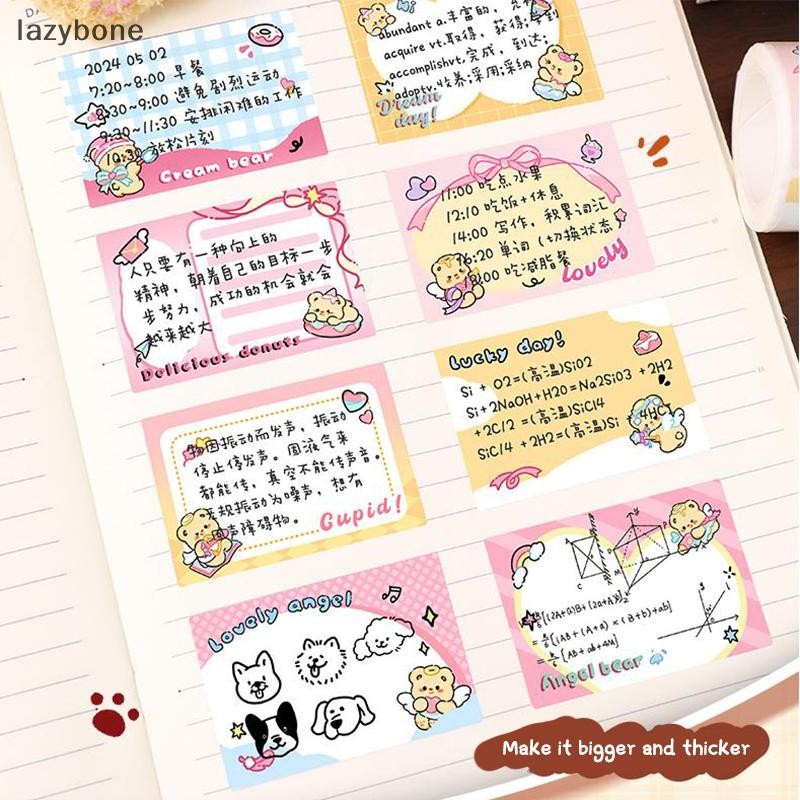 lazybone
2024 05 02
7:20~8:00 早餐
8:30~9:00 避免剧烈运动
9:30~11:30 安排困难的工作
10:30 放松片刻
Cream bear
Hi
abundant a.丰富的,
acquire vt.取得,获得;
accomplishvt.完成,到达,
adoptv.收养;采用;采纳
Dream
day!
人只要有一种向上的
精神,朝着自己的目标一步
步努力,成功的机会就会
越来越大
Delicious donuts
11:00 吃点水果
12:10 吃饭+休息
14:00 写作,积累词汇
16:20 单词(切换状态)
18:00 吃减脂餐
Lovely
Lucky day!
Si + O2=(高温)SiO2
Si+2NaOH+H2O=Na2SiO3 +2H2
+2C/2 =(高温)SiC14
SiC14 +2H2=(高温)Si + 4HC
物因振动而发声,振动
停止停发声。固液气来
都能传,真空不能传声音。
规振动为噪声,想有
声障碍物。
Cupid!
Lovely angel
[(2A+a)B+(2a+A)
[(AB+(A+a)×(B+b)+ab]
[AB+ab+4M]
Angel bear
Make it bigger and thicker